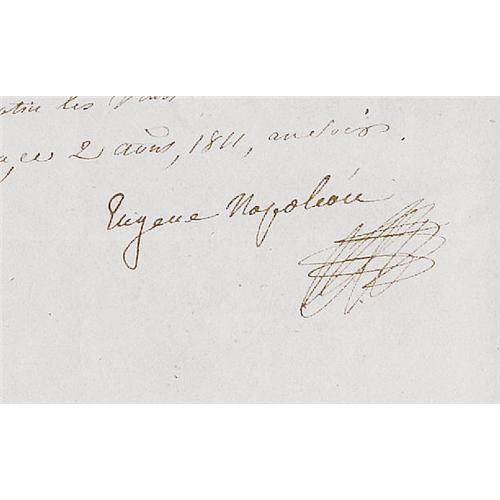 les
ce 2 août, 1811, au soir.
Eugene Napoléon